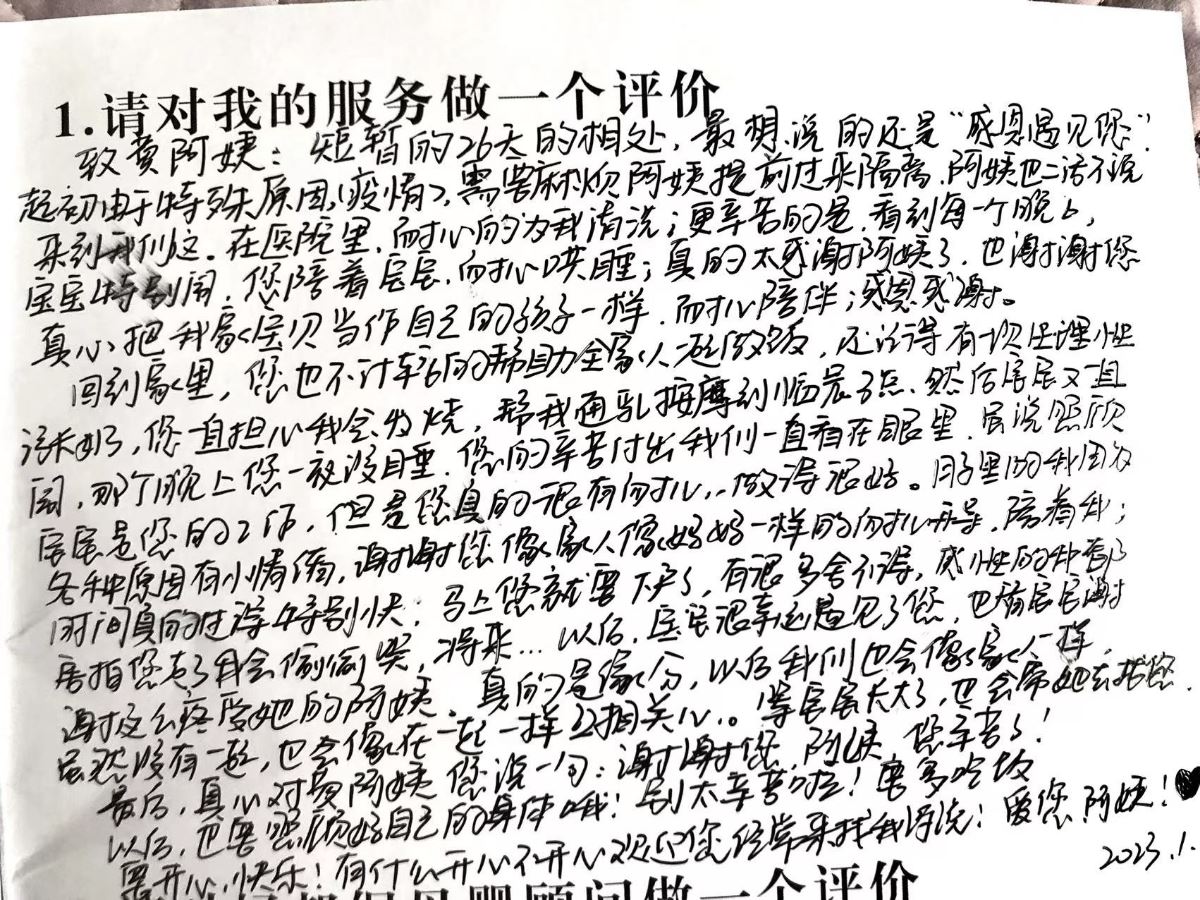 1.请对我的服务做一个评价
致黄阿姨：短暂的26天的相处，最想说的还是“感恩遇见您”
起初由于特殊原因（疫情），需要麻烦阿姨提前过来隔离，阿姨也二话不说
来到我们这。在医院里，耐心的为我清洗；更辛苦的是，看到每一个晚上，
宝宝特别闹，您陪着层层，耐心哄睡；真的太感谢阿姨了，也谢谢您
真心把我家宝贝当作自己的孩子一样，耐心陪伴；感恩感谢。
回到家里，您也不计辛苦的帮助全家人一起做饭，还记得有一次生理性
涨奶了，您一直担心我会发烧，帮我通乳按摩到临晨3点，然后层层又一直
闹，那个晚上您一夜没睡，您的辛苦付出我们一直看在眼里，虽说照顾
层层是您的工作，但是您真的很有耐心，做得很好。月子里的我因为
各种原因有小情绪，谢谢您像家人像妈妈一样的耐心开导，陪着我；
时间真的过得特别快；马上您就要下户了，有很多舍不得，感性的种都
害怕您走了我会偷偷哭，将来...以后，层层很幸运遇见了您，也替层层谢
谢这么疼爱她的阿姨，真的是缘分，以后我们也会像家人一样，
虽然没有一起，也会像在一起一样互相关心。等层层长大了，也会带她去找您
最后，真心对黄阿姨您说一句：谢谢您，阿姨您辛苦了！
以后，也要照顾好自己的身体哦！别太辛苦啦！要多吃饭
要开心，快乐！有什么开心不开心欢迎您经常来找我诉说！爱您阿姨！
2023.1.
顾问做一个评价